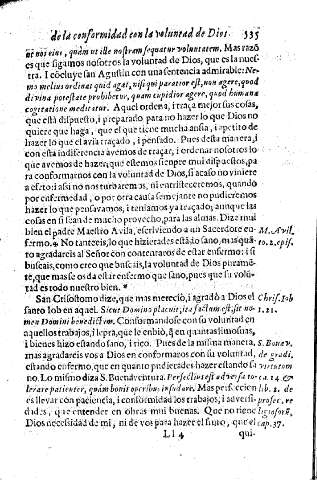 de la conformidad con la voluntad de Dios. 535
ni nos eius, quàm ut ille nostram sequatur voluntatem. Mas razō
es que sigamos nosotros la voluntad de Dios, que es la nues-
tra. I cōcluye san Agustin con una sentencia admirable: Ne-
mo melius ordinat quid agat, nisi qui paratior est, non agere, quod
divina potestate prohibetur, quàm cupidior agere, quod humana
cogitatione meditatur. Aquel ordena, i traça mejor sus cosas,
que està dispuesto, i preparado para no hazer lo que Dios no
quiere que haga, que el que tiene mucha ansia, i apetito de
hazer lo que el avia traçado, i pensado. Pues desta manera, i
con esta indiferencia avemos de traçar, i ordenar nosotros lo
que avemos de hazer; que estemos siempre mui dispuestos, pa
ra conformarnos con la voluntad de Dios, si acaso no viniere
a efeto: i assi no nos turbaremos, ni entristeceremos, quando
por enfermedad, o por otra causa semejante no pudieremos
hazer lo que pensavamos, i teniamos ya traçado; aunque las
cosas en si sean de mucho provecho, para las almas. Dize mui
bien el padre Maestro Avila, escriviendo a un Sacerdote en- M. Avil.
fermo. No tanteeis, lo que hizierades estādo sano, mas quā- to. 2. epis.
to agradareis al Señor con contentaros de estar enfermo: i si
buscais, como creo que buscais, la voluntad de Dios purame-
te, que mas se os da estar enfermo que sano, pues que su volū-
tad es todo nuestro bien.
San Crisostomo dize, que mas mereciò, i agradò a Dios el Chris. Iob
santo Iob en aquel. Sicut Domino placuit, ita factum est, sit no- 1. 21.
men Domini benedictum. Conformandose con su voluntad en
aquellos trabajos, i lepra, que le enbiò, q̄ en quantas limosnas,
i bienes hizo estando sano, i rico. Pues de la misma manera, S. Bonav.
mas agradareis vos a Dios en conformaros con su voluntad, de gradi.
estando enfermo, que en quanto pudierades hazer estando sa virtutum
no. Lo mismo dize S. Buenaventura. Perfectius est adversa to- ca. 24. &
lerare patienter, quàm bonis operibus insudare. Mas perfeccion lib. 2. de
es llevar con paciencia, i conformidad los trabajos, i adversi- profec. re
dades, que entender en obras mui buenas. Que no tiene ligiosorū,
Dios necessidad de mi, ni de vos para hazer el fruto, que el cap. 37.
Ll 4 qui-